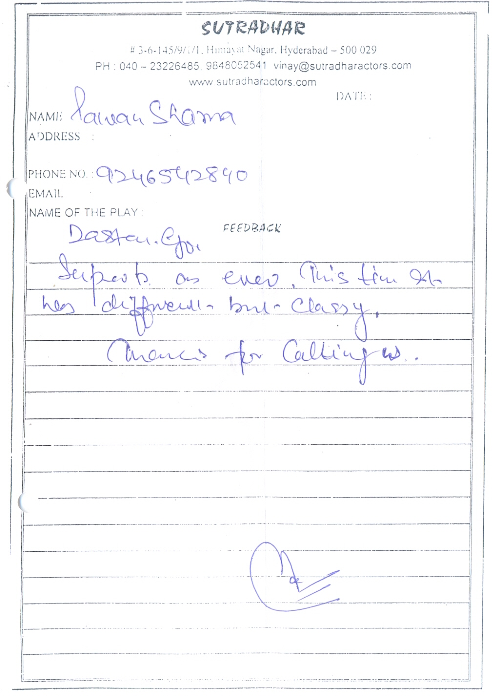 SUTRADHAR
# 3-6-145/9/1/1, Himayat Nagar, Hyderabad – 500 029
PH : 040 – 23226485, 9848092541 vinay@sutradharactors.com
www.sutradharactors.com
DATE :
NAME Pawan Sharma
ADDRESS :
PHONE NO. : 9246542840
EMAIL
NAME OF THE PLAY :
FEEDBACK
Dastan. Goi,
Superb as ever. This time It
has different but Classy.
Thanks for Calling us..